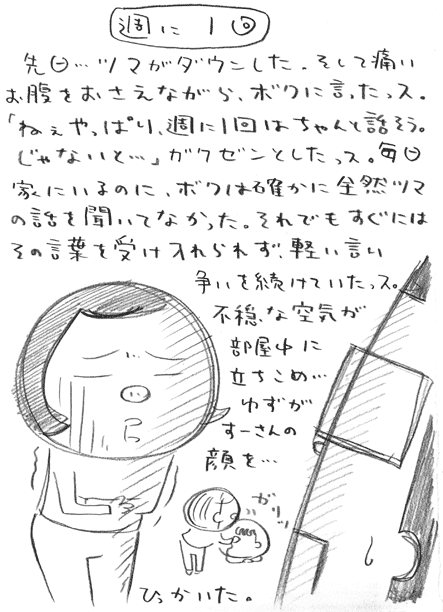 週に1回
先日…ツマがダウンした。そして痛い
お腹をおさえながら、ボクに言ったっス。
「ねぇやっぱり、週に1回はちゃんと話そう。
じゃないと…」ガクゼンとしたっス。毎日
家にいるのに、ボクは確かに全然ツマ
の話を聞いてなかった。それでもすぐには
その言葉を受け入れられず、軽い言い
争いを続けていたっス。
不穏な空気が
部屋中に
立ちこめ…
ゆずが
すーさんの
顔を…
ガリッ
ひっかいた。